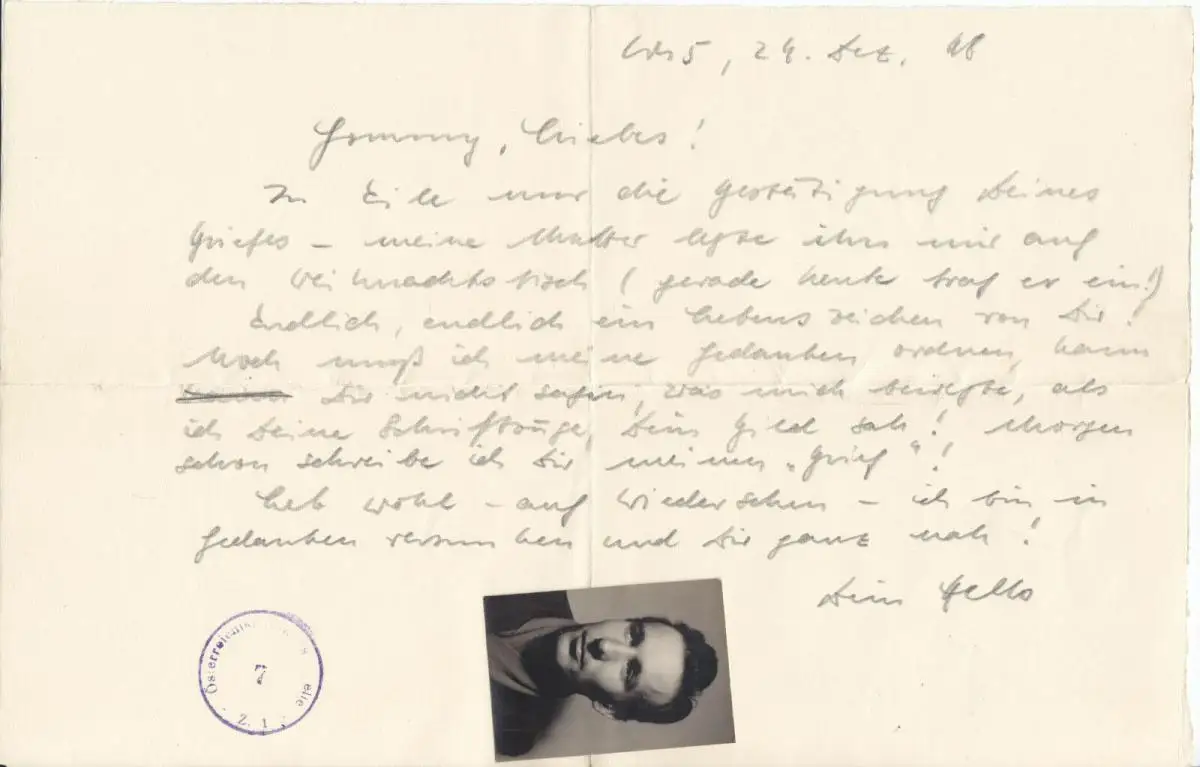 24. Dez. 48
Liebes!
In Eile nur die Bestätigung Deines
Briefes – meine Mutter legte ihn mir auf
den Weihnachtstisch (gerade heute traf er ein!)
Endlich, endlich ein Lebenszeichen von Dir!
Noch muß ich meine Gedanken ordnen, kann
Dir nicht sagen, was mich bewegte, als
ich Deine Schriftzüge, Dein Bild sah! Morgen
schon schreibe ich Dir meinen „Brief“!
Leb wohl – auf Wiedersehen – ich bin in
Gedanken versunken und Dir ganz nah!
Dein
2